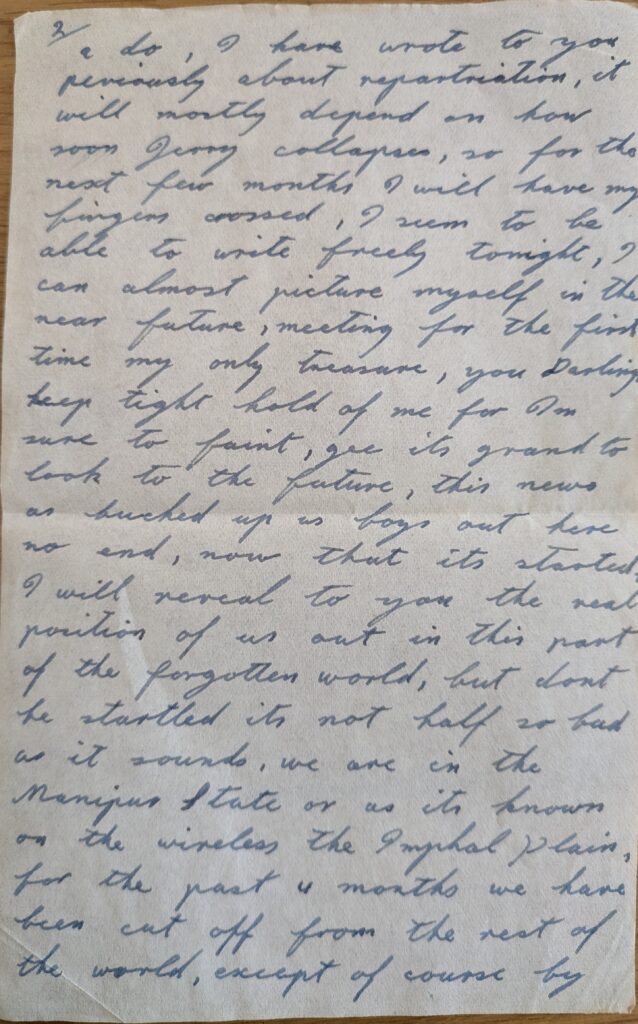 2/
a do, I have wrote to you
periously about repartriation, it
will mostly depend on how
soon Jerry collapses, so for the
next few months I will have my
fingers crossed, I seem to be
able to write freely tonight, I
can almost picture myself in the
near future, meeting for the first
time my only treasure, you Darling
keep tight hold of me for Im
sure to faint, gee its grand to
look to the future, this news
as bucked up us boys out here
no end, now that its started,
I will reveal to you the real
position of us out in this part
of the forgotten world, but dont
be startled its not half so bad
as it sounds, we are in the
Manipur State or as its known
on the wireless the Imphal Plain,
for the past 4 months we have
been cut off from the rest of
the world, except of course by